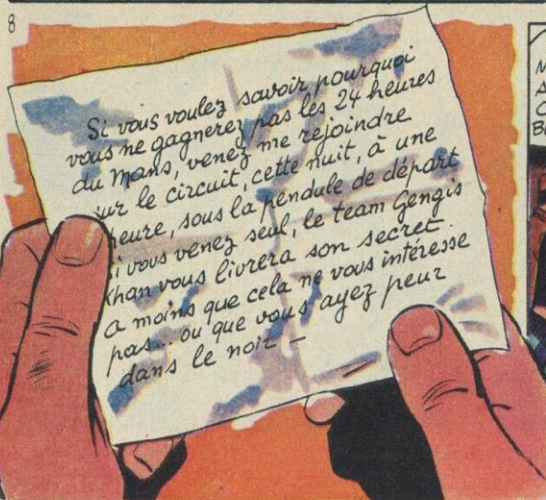 8
Si vous voulez savoir pourquoi
vous ne gagnerez pas les 24 heures
du Mans, venez me rejoindre
sur le circuit, cette nuit, à une
heure, sous la pendule de départ
si vous venez seul, le team Gengis
Khan vous livrera son secret.
a moins que cela ne vous intéresse
pas... ou que vous ayez peur
dans le noir —